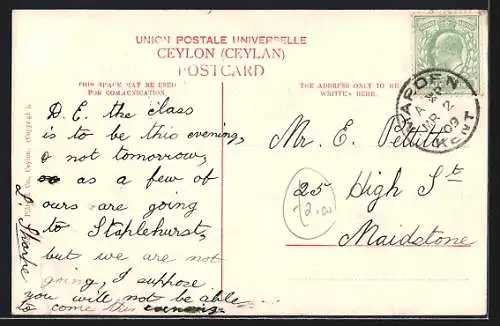 UNION POSTALE UNIVERSELLE
CEYLON (CEYLAN)
POSTCARD
THIS SPACE MAY BE USED
FOR COMMUNICATION.
THE ADDRESS ONLY TO BE
WRITTEN HERE.
D.E. the class
is to be this evening,
& not tomorrow,
as a few of
ours are going
to Staplehurst,
but we are not
going, I suppose
you will not be able
to come this evening
L. Sharpe
Mr. E. Pettitt
25 High St
Maidstone
MARDEN
MR 2
09
KENT